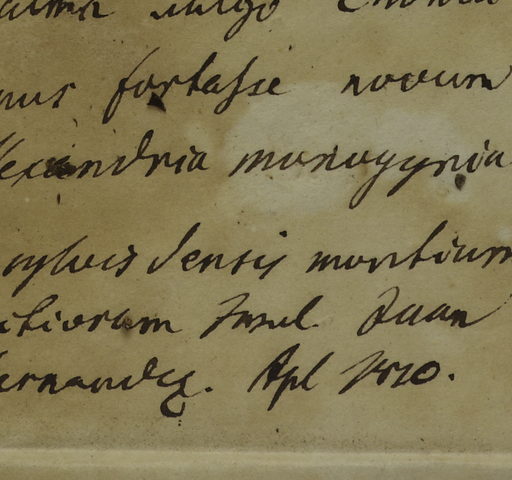 vulgo
nus fortasse novum
exandria monogynia
sylvis densis montium
itiorum Insul. Juan
ernandez. Apl 1830.